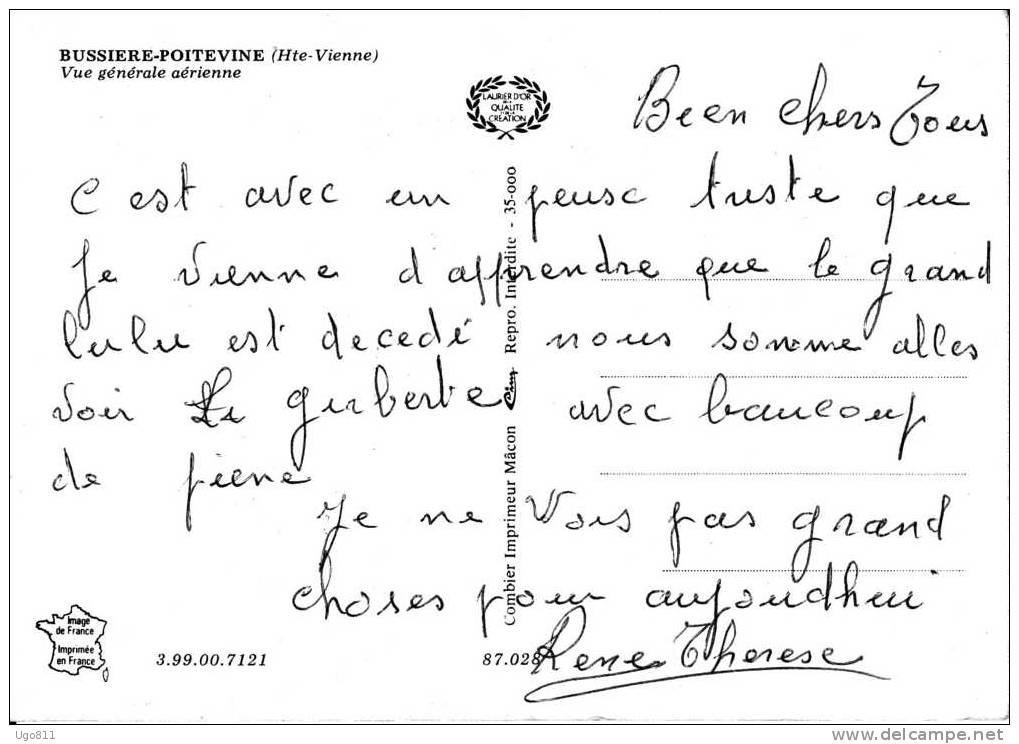 BUSSIERE-POITEVINE (Hte-Vienne)
Vue générale aérienne
LAURIER D'OR
QUALITE
CREATION
Been chers Tous
C est avec un peusc triste que
Je vienne d'apprendre que le grand
lulu est decedé nous somme alles
voir gerberte avec beaucoup
de piene
Je ne Vois pas grand
choses pour aujoudhui
Rene Therese
Combier Imprimeur Mâcon Cim Repro. Interdite - 35-000
Image
de France
Imprimée
en France
3.99.00.7121
87.028
Ugo811
www.delcampe.net